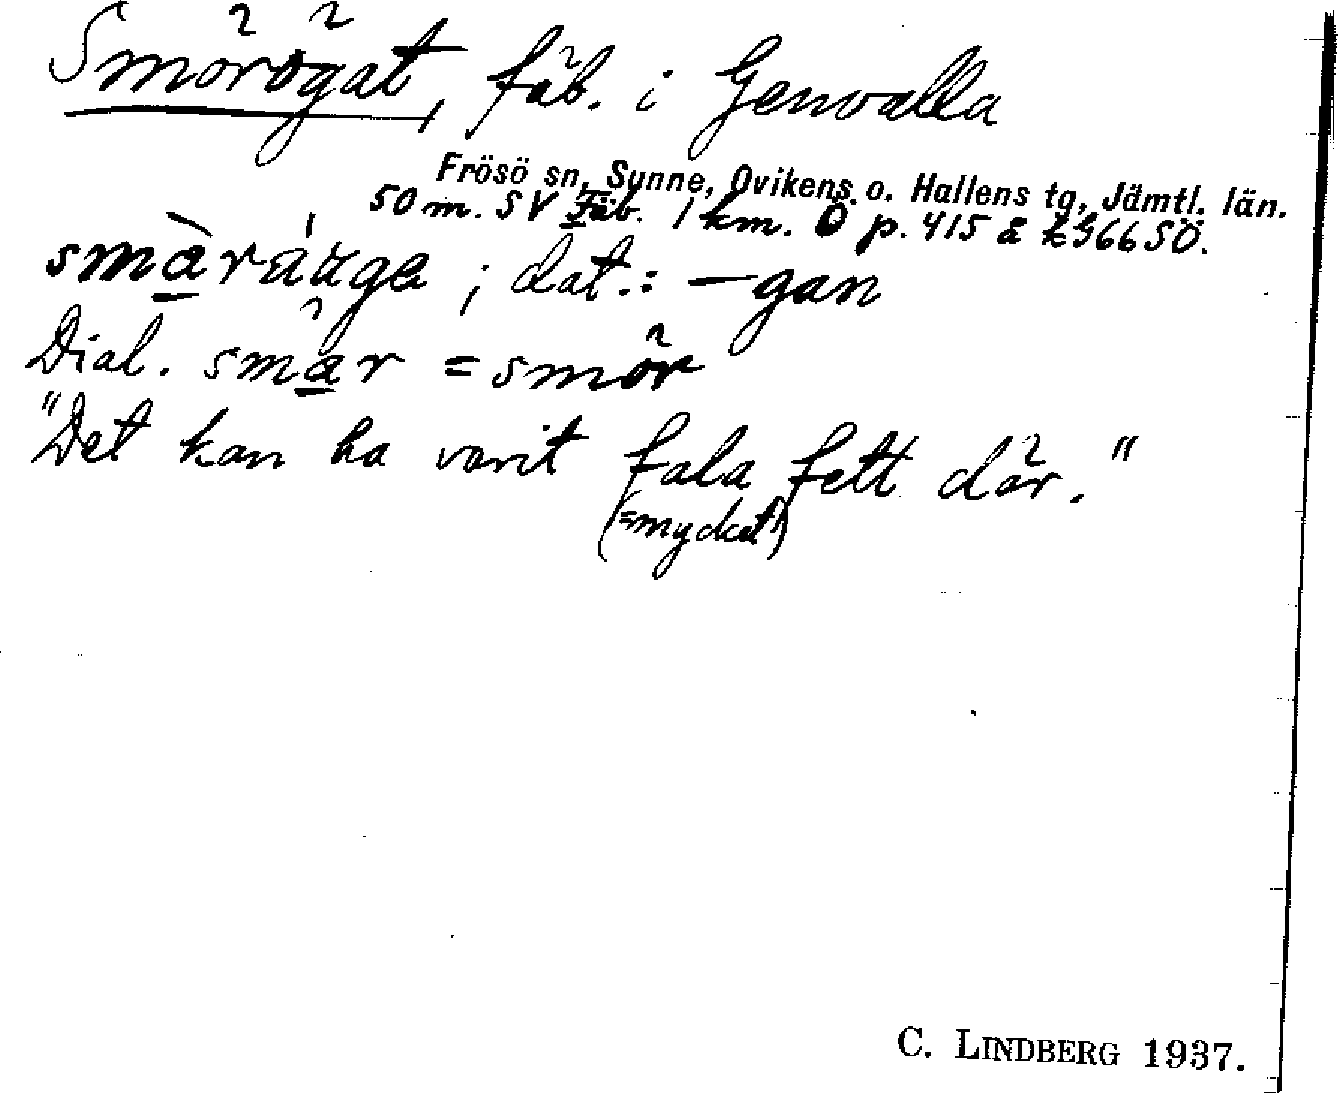 Smörögat, fäb. i Genvalla
Frösö sn, Sunne, Ovikens o. Hallens tg, Jämtl. län.
50 m. SV Fäb. 1 km. Ö p. 415 å 66 SÖ.
smàráuga ; dat.: -gan
Dial. smar = smör
"Det kan ha varit fala fett där."
(=mycket)
C. LINDBERG 1937.